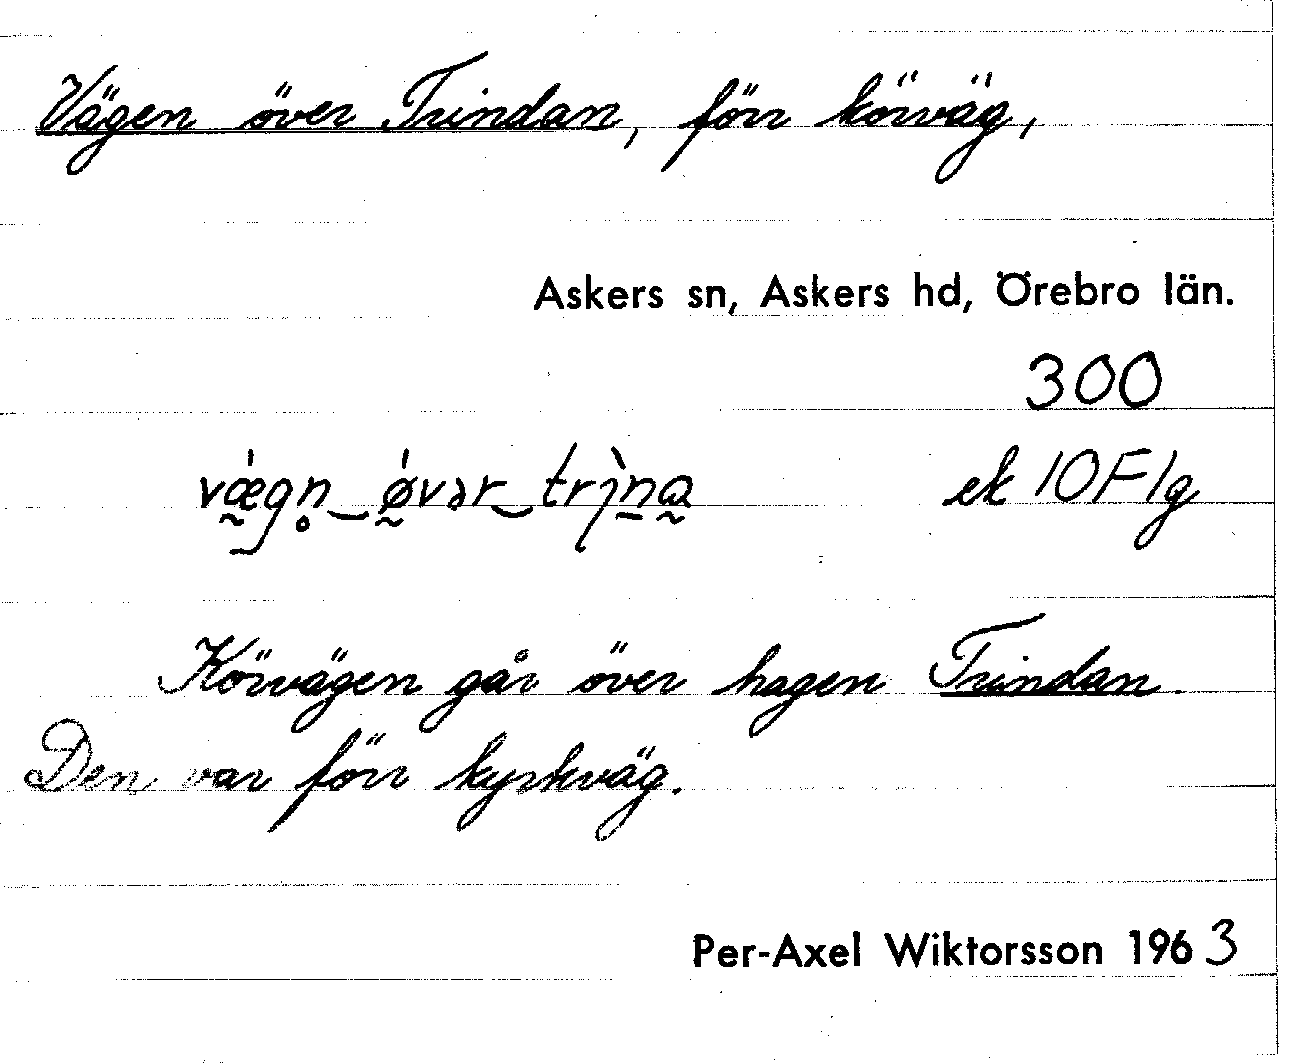 Vägen över Trindan, förr körväg,
Askers sn, Askers hd, Örebro län.
300
væ̀gn̥‿øvər‿trìna ek 10F1g
Körvägen går över hagen Trindan.
Den var förr kyrkväg.
Per-Axel Wiktorsson 1963